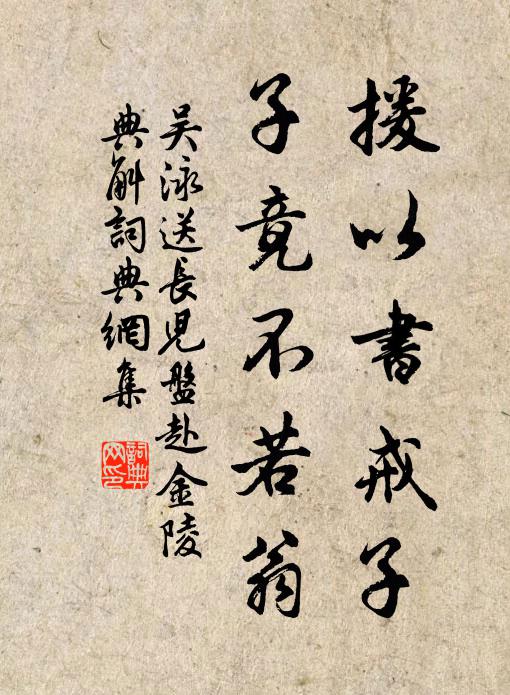 援以書戒子
子竟不若翁
吳泳送長兒盤赴金陵
典斛詞典網集
詞典網印